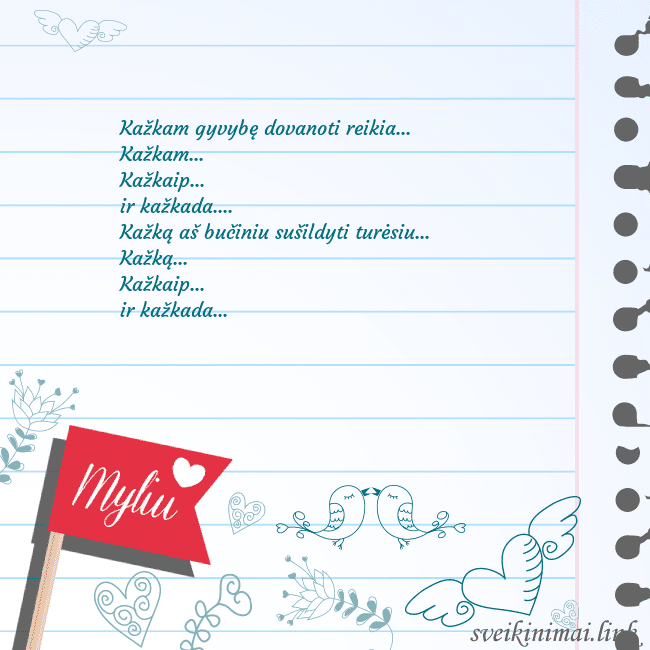 Kažkam gyvybę dovanoti reikia...
Kažkam...
Kažkaip...
ir kažkada....
Kažką aš bučiniu sušildyti turėsiu...
Kažką...
Kažkaip...
ir kažkada...
Myliu
sveikinimai.link